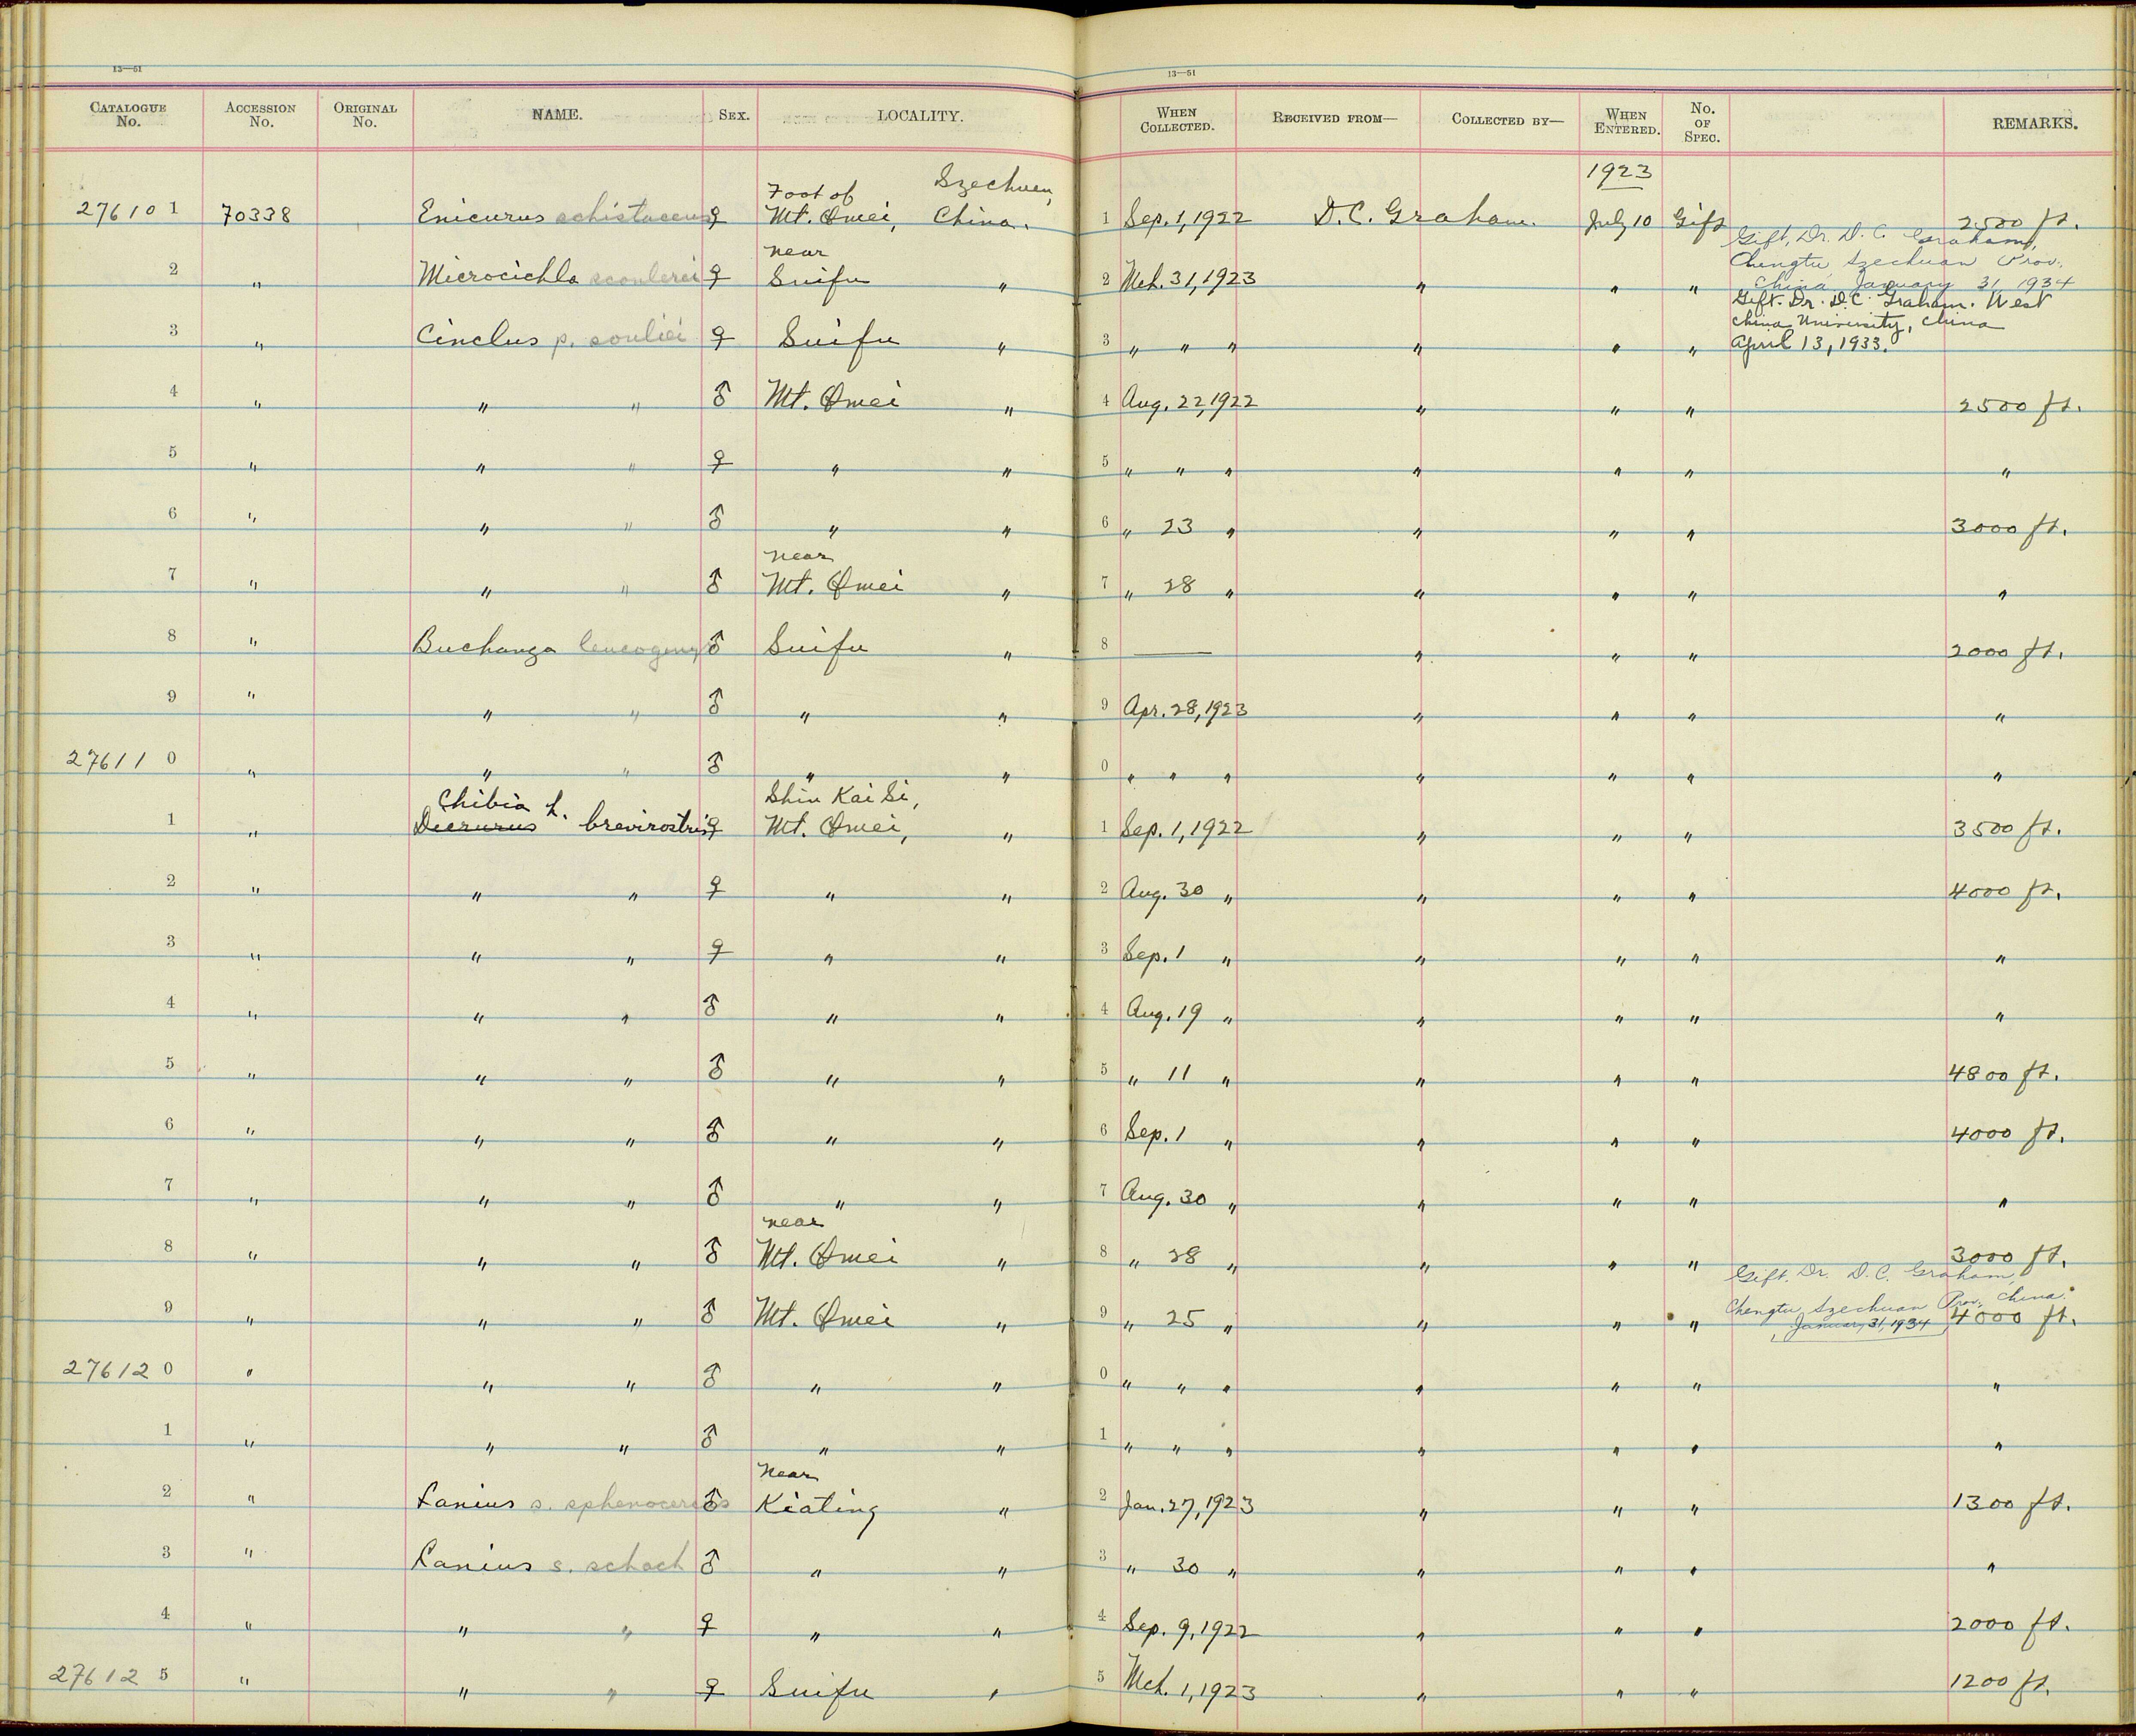 13—51
13—51
CATALOGUE No. ACCESSION No. ORIGINAL No. NAME. SEX. LOCALITY. WHEN COLLECTED. RECEIVED FROM— COLLECTED BY— WHEN ENTERED. No. OF SPEC. REMARKS.
1923
Foot of Szechuen,
27610 1 70338 Enicurus schistaceus ♀ Mt. Omei, China. 1 Sep. 1, 1922 D. C. Graham. July 10 Gift 2500 ft.
Gift, Dr. D. C. Graham,
near Chengtu, Szechuan Prov.,
2 " Microcichla scouleri ♀ Suifu " 2 Mch. 31, 1923 " " " China, January 31, 1934
Gift. Dr. D. C. Graham. West
China University, China
3 " Cinclus p. souliei ♀ Suifu " 3 " " " " " " April 13, 1933.
4 " " " ♂ Mt. Omei " 4 Aug. 22, 1922 " " " 2500 ft.
5 " " " ♀ " " 5 " " " " " " "
6 " " " ♂ " " 6 " 23 " " " " 3000 ft.
near
7 " " " ♂ Mt. Omei " 7 " 28 " " " " "
8 " Buchanga leucogenys ♂ Suifu " 8 — " " " 2000 ft.
9 " " " ♂ " " 9 Apr. 28, 1923 " " " "
27611 0 " " " ♂ " " 0 " " " " " " "
Chibia h. Shin Kai Si,
1 " Dicrurus brevirostris ♀ Mt. Omei, " 1 Sep. 1, 1922 " " " 3500 ft.
2 " " " ♀ " " 2 Aug. 30 " " " " 4000 ft.
3 " " " ♀ " " 3 Sep. 1 " " " " "
4 " " " ♂ " " 4 Aug. 19 " " " " "
5 " " " ♂ " " 5 " 11 " " " " 4800 ft.
6 " " " ♂ " " 6 Sep. 1 " " " " 4000 ft.
7 " " " ♂ " " 7 Aug. 30 " " " " "
near
8 " " " ♂ Mt. Omei " 8 " 28 " " " " 3000 ft.
Gift, Dr. D. C. Graham,
Chengtu, Szechuan Prov., China.
9 " " " ♂ Mt. Omei " 9 " 25 " " " " January 31, 1934 4000 ft.
27612 0 " " " ♂ " " 0 " " " " " " "
1 " " " ♂ " " 1 " " " " " " "
near
2 " Lanius s. sphenocercus ♂ Kiating " 2 Jan. 27, 1923 " " " 1300 ft.
3 " Lanius s. schach ♂ " " 3 " 30 " " " " "
4 " " " ♀ " " 4 Sep. 9, 1922 " " " 2000 ft.
27612 5 " " " ♀ Suifu " 5 Mch. 1, 1923 " " " 1200 ft.